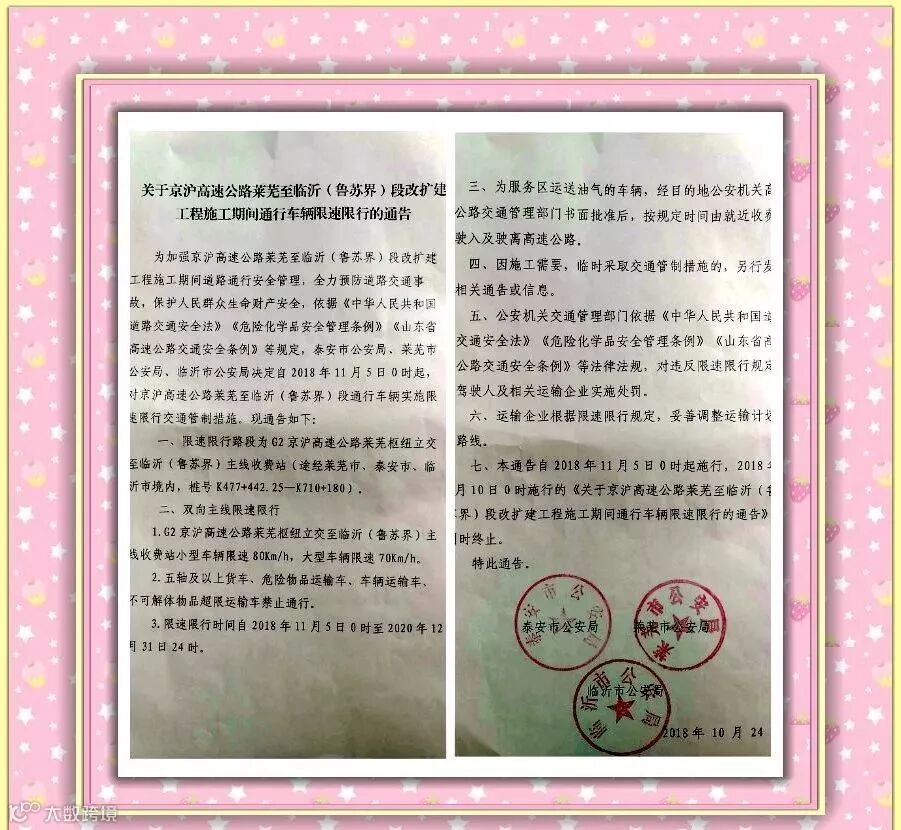 关于京沪高速公路莱芜至临沂（鲁苏界）段改扩建
工程施工期间通行车辆限速限行的通告
为加强京沪高速公路莱芜至临沂（鲁苏界）段改扩建
工程施工期间道路通行安全管理，全力预防道路交通事
故，保护人民群众生命财产安全，依据《中华人民共和国
道路交通安全法》《危险化学品安全管理条例》《山东省
高速公路交通安全条例》等规定，泰安市公安局、莱芜市
公安局、临沂市公安局决定自2018年11月5日0时起，
对京沪高速公路莱芜至临沂（鲁苏界）段通行车辆实施限
速限行交通管制措施。现通告如下：
一、限速限行路段为G2京沪高速公路莱芜枢纽立交
至临沂（鲁苏界）主线收费站（途经莱芜市、泰安市、临
沂市境内，桩号K477+442.25—K710+180）。
二、双向主线限速限行
1.G2京沪高速公路莱芜枢纽立交至临沂（鲁苏界）主
线收费站小型车辆限速80Km/h，大型车辆限速70Km/h。
2.五轴及以上货车、危险物品运输车、车辆运输车、
不可解体物品超限运输车禁止通行。
3.限速限行时间自2018年11月5日0时至2020年12
月31日24时。
三、为服务区运送油气的车辆，经目的地公安机关高
公路交通管理部门书面批准后，按规定时间由就近收费
驶入及驶离高速公路。
四、因施工需要，临时采取交通管制措施的，另行发
相关通告或信息。
五、公安机关交通管理部门依据《中华人民共和国道
交通安全法》《危险化学品安全管理条例》《山东省高
公路交通安全条例》等法律法规，对违反限速限行规定
驾驶人及相关运输企业实施处罚。
六、运输企业根据限速限行规定，妥善调整运输计划
路线。
七、本通告自2018年11月5日0时起施行，2018年
月10日0时施行的《关于京沪高速公路莱芜至临沂（鲁
苏界）段改扩建工程施工期间通行车辆限速限行的通告》
同时终止。
特此通告。
泰安市公安局
泰安市公安局
莱芜市公安局
莱芜市公安局
临沂市公安局
临沂市公安局
2018年10月24
大数跨境